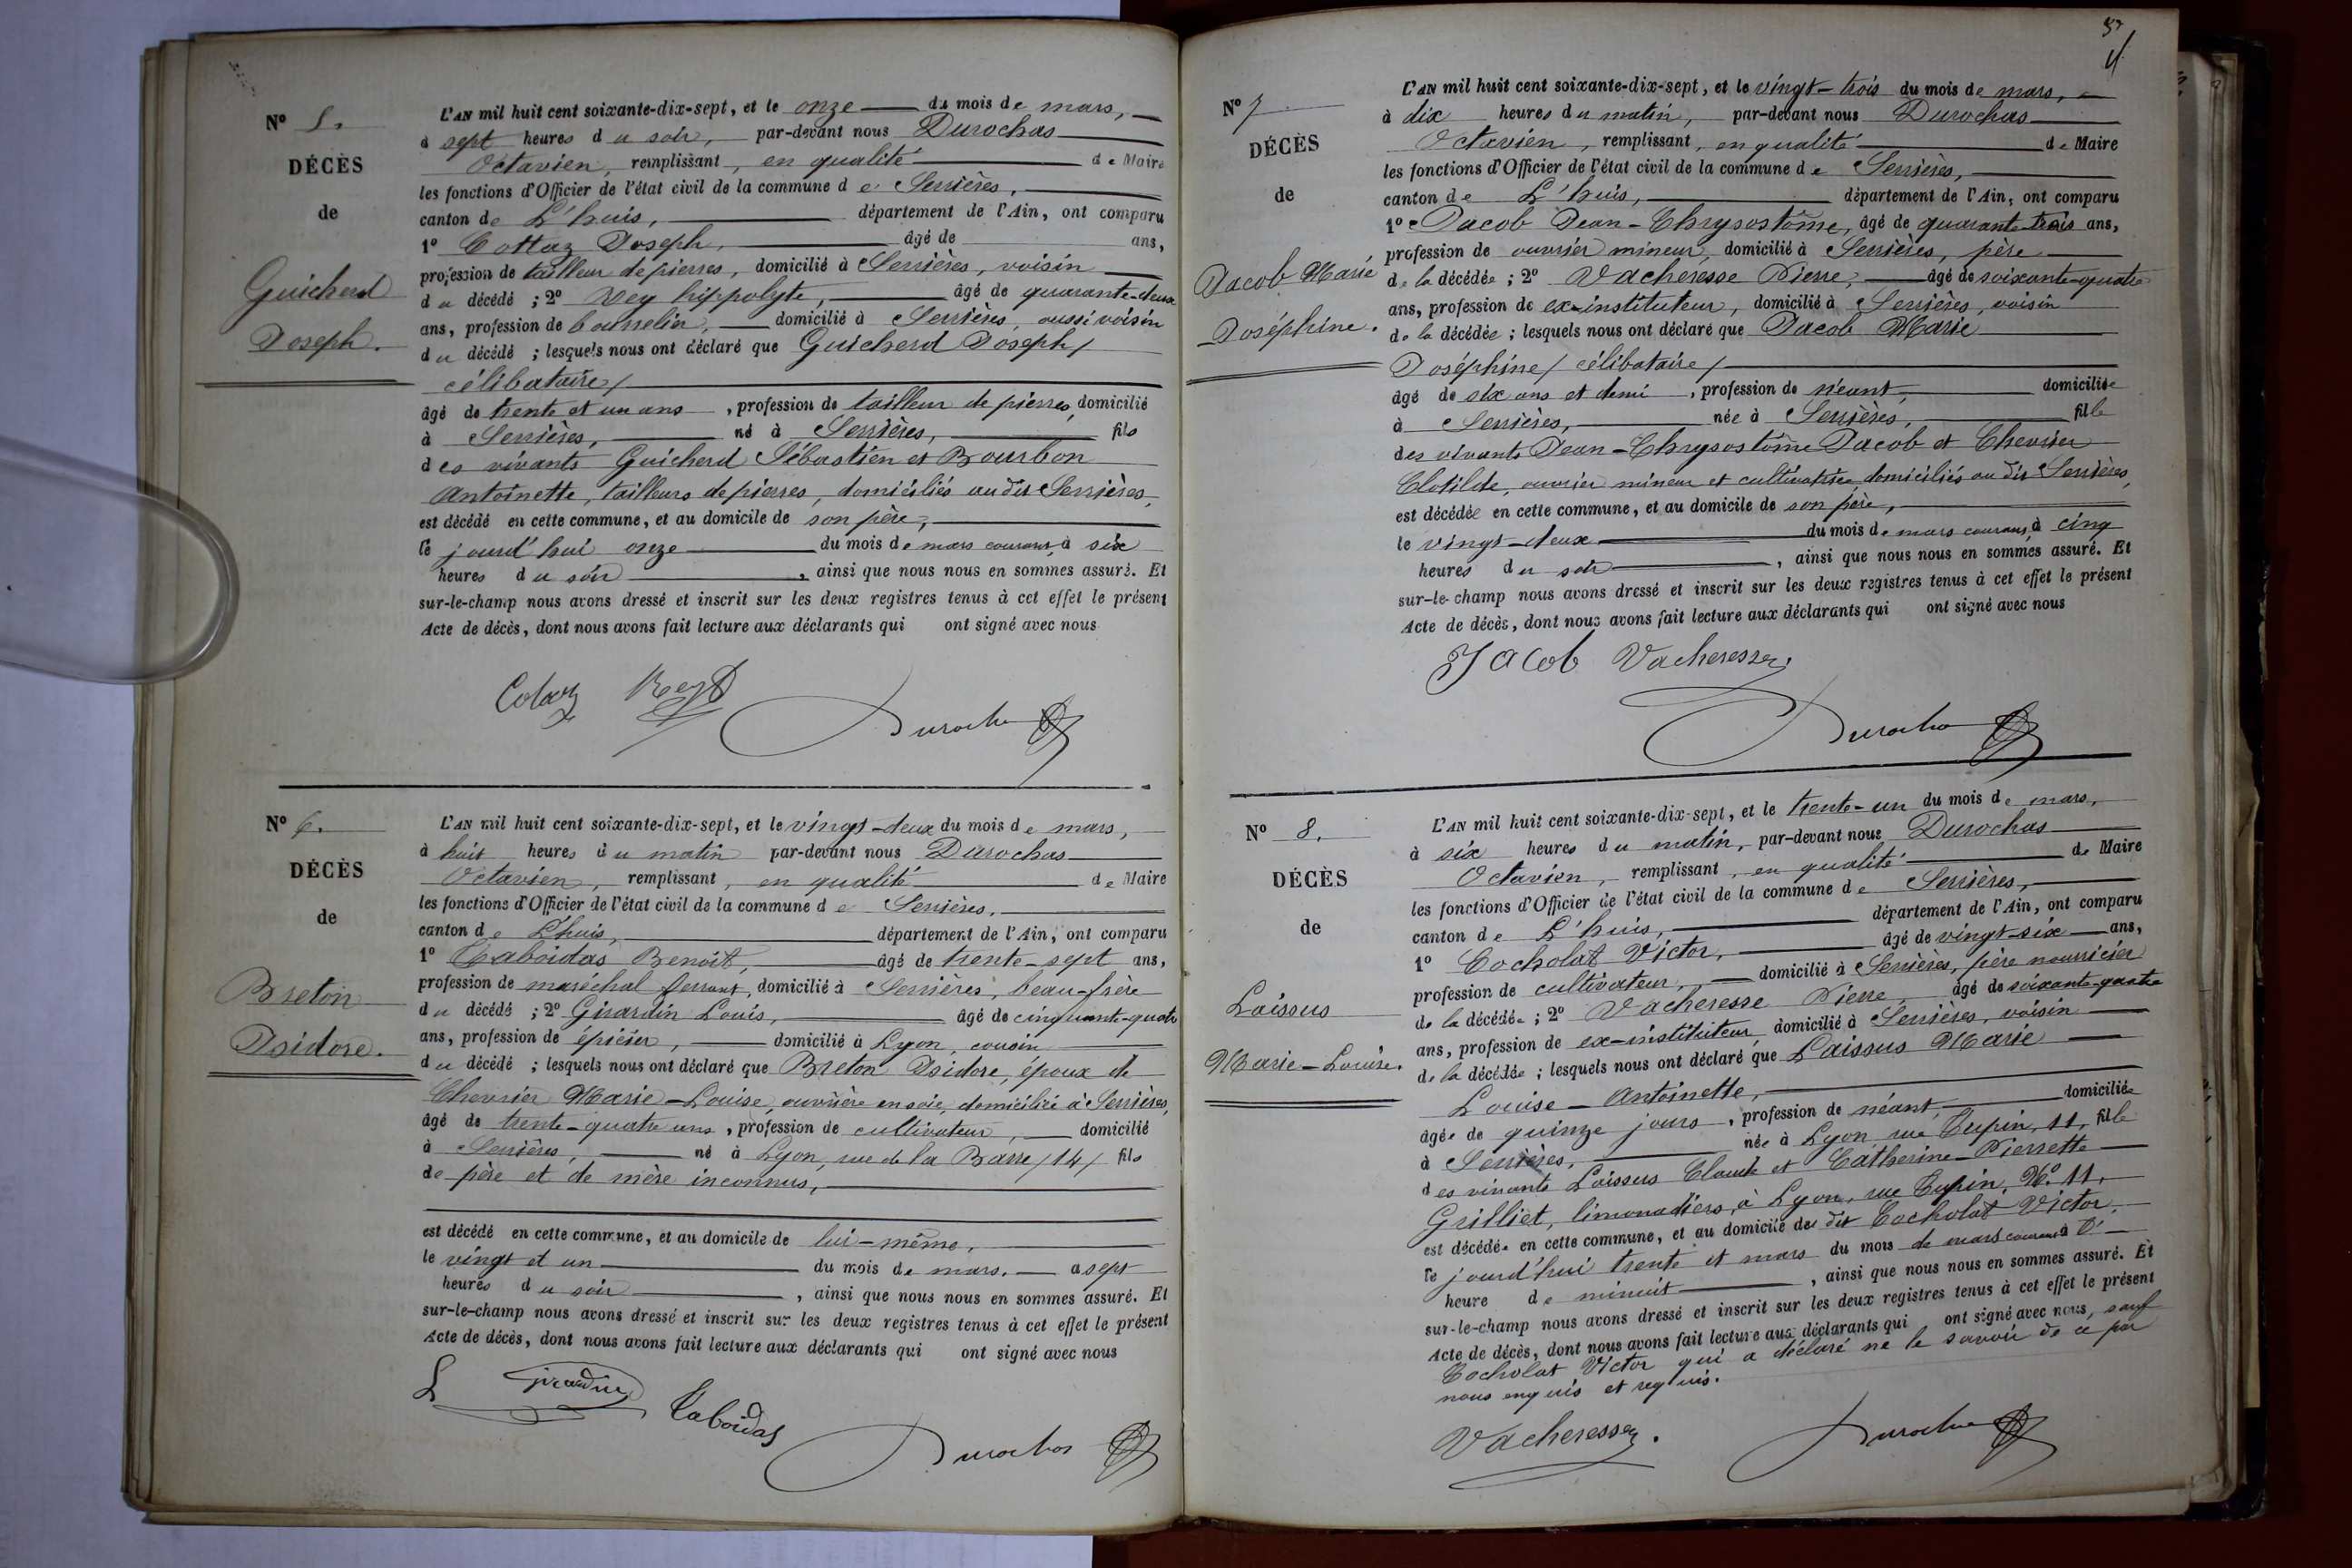 N° 5.
DÉCÈS
de
Guicherd
Joseph.
L'AN mil huit cent soixante-dix-sept, et le onze du mois de mars,
à sept heures du soir, par-devant nous Durochas
Octavien, remplissant, en qualité de Maire
les fonctions d'Officier de l'état civil de la commune de Serrières,
canton de L'huis, département de l'Ain, ont comparu
1° Cottaz Joseph, âgé de ans,
profession de tailleur de pierres, domicilié à Serrières, voisin
du décédé ; 2° Rey hippolyte, âgé de quarante-deux
ans, profession de bourrelier, domicilié à Serrières, aussi voisin
du décédé ; lesquels nous ont déclaré que Guicherd Joseph /
célibataire /
âgé de trente et un ans, profession de tailleur de pierres, domicilié
à Serrières, né à Serrières, fils
des vivants Guicherd Sébastien et Bourbon
Antoinette, tailleurs de pierres, domiciliés au dit Serrières,
est décédé en cette commune, et au domicile de son père,
le jourd'hui onze du mois de mars courant, à six
heures du soir, ainsi que nous nous en sommes assuré. Et
sur-le-champ nous avons dressé et inscrit sur les deux registres tenus à cet effet le présent
Acte de décès, dont nous avons fait lecture aux déclarants qui ont signé avec nous
Cotaz Rey Durochas
N° 6.
DÉCÈS
de
Breton
Isidore.
L'AN mil huit cent soixante-dix-sept, et le vingt-deux du mois de mars,
à huit heures du matin par-devant nous Durochas
Octavien, remplissant, en qualité de Maire
les fonctions d'Officier de l'état civil de la commune de Serrières,
canton de L'huis, département de l'Ain, ont comparu
1° Taboidas Benoit, âgé de trente-sept ans,
profession de maréchal ferrant, domicilié à Serrières, beau-frère
du décédé ; 2° Girardin Louis, âgé de cinquante-quatre
ans, profession de épicier, domicilié à Lyon, cousin
du décédé ; lesquels nous ont déclaré que Breton Isidore, époux de
Chevrier Marie-Louise, ouvrière en soie, domiciliée à Serrières,
âgé de trente-quatre ans, profession de cultivateur, domicilié
à Serrières, né à Lyon, rue de la Barre /14/ fils
de père et de mère inconnus,
est décédé en cette commune, et au domicile de lui-même,
le vingt et un du mois de mars, à sept
heures du soir, ainsi que nous nous en sommes assuré. Et
sur-le-champ nous avons dressé et inscrit sur les deux registres tenus à cet effet le présent
Acte de décès, dont nous avons fait lecture aux déclarants qui ont signé avec nous
L Girardin Taboidas Durochas
N° 7
DÉCÈS
de
Jacob Marie
Joséphine.
L'AN mil huit cent soixante-dix-sept, et le vingt-trois du mois de mars,
à dix heures du matin, par-devant nous Durochas
Octavien, remplissant, en qualité de Maire
les fonctions d'Officier de l'état civil de la commune de Serrières,
canton de L'huis, département de l'Ain, ont comparu
1° Jacob Jean-Chrysostôme, âgé de quarante-trois ans,
profession de ouvrier mineur, domicilié à Serrières, père
de la décédée ; 2° Vacheresse Pierre, âgé de soixante-quatre
ans, profession de ex-instituteur, domicilié à Serrières, voisin
de la décédée ; lesquels nous ont déclaré que Jacob Marie
Joséphine / célibataire /
âgé de six ans et demi, profession de néant, domiciliée
à Serrières, née à Serrières, fille
des vivants Jean-Chrysostôme Jacob et Chevrier
Clotilde, ouvrier mineur et cultivatrice domiciliés au dit Serrières,
est décédée en cette commune, et au domicile de son père,
le vingt-deux du mois de mars courant, à cinq
heures du soir, ainsi que nous nous en sommes assuré. Et
sur-le-champ nous avons dressé et inscrit sur les deux registres tenus à cet effet le présent
Acte de décès, dont nous avons fait lecture aux déclarants qui ont signé avec nous
Jacob Vacheresse
Durochas
N° 8.
DÉCÈS
de
Laissus
Marie-Louise.
L'AN mil huit cent soixante-dix-sept, et le trente-un du mois de mars,
à six heures du matin, par-devant nous Durochas
Octavien, remplissant, en qualité de Maire
les fonctions d'Officier de l'état civil de la commune de Serrières,
canton de L'huis, département de l'Ain, ont comparu
1° Cocholat Victor, âgé de vingt-six ans,
profession de cultivateur, domicilié à Serrières, père nourricier
de la décédée ; 2° Vacheresse Pierre âgé de soixante-quatre
ans, profession de ex-instituteur, domicilié à Serrières, voisin
de la décédée ; lesquels nous ont déclaré que Laissus Marie
Louise-Antoinette,
âgée de quinze jours, profession de néant, domiciliée
à Serrières, née à Lyon, rue Tupin, 11, fille
des vivants Laissus Claude et Catherine-Pierrette
Grilliet, limonadiers, à Lyon, rue Tupin, N°. 11,
est décédée en cette commune, et au domicile du dit Cocholat Victor,
le jourd'hui trente et mars du mois de mars courant à
heure de minuit, ainsi que nous nous en sommes assuré. Et
sur-le-champ nous avons dressé et inscrit sur les deux registres tenus à cet effet le présent
Acte de décès, dont nous avons fait lecture aux déclarants qui ont signé avec nous, sauf
Cocholat Victor qui a déclaré ne le savoir de ce par
nous enquis et requis.
Vacheresse. Durochas